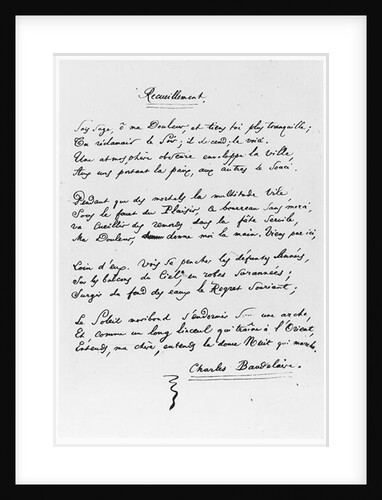 Recueillement.
Sois sage, ô ma Douleur, et tiens toi plus tranquille ;
Tu réclamais le Soir ; il descend ; le voici.
Une atmosphère obscure enveloppe la ville,
Aux uns portant la paix, aux autres le Souci.
Pendant que des mortels la multitude vile,
Sous le fouet du Plaisir, ce bourreau sans merci,
Va cueillir des remords dans la fête servile,
Ma Douleur, donne moi la main. Viens par ici,
Loin d'eux. Vois se pencher les défuntes Années,
Sur les balcons du Ciel, en robes surannées ;
Surgir du fond des eaux le Regret Souriant ;
Le Soleil moribond s'endormir sous une arche,
Et comme un long linceul qui traîne à l'Orient,
Entends, ma chère, entends la douce Nuit qui marche.
Charles Baudelaire.